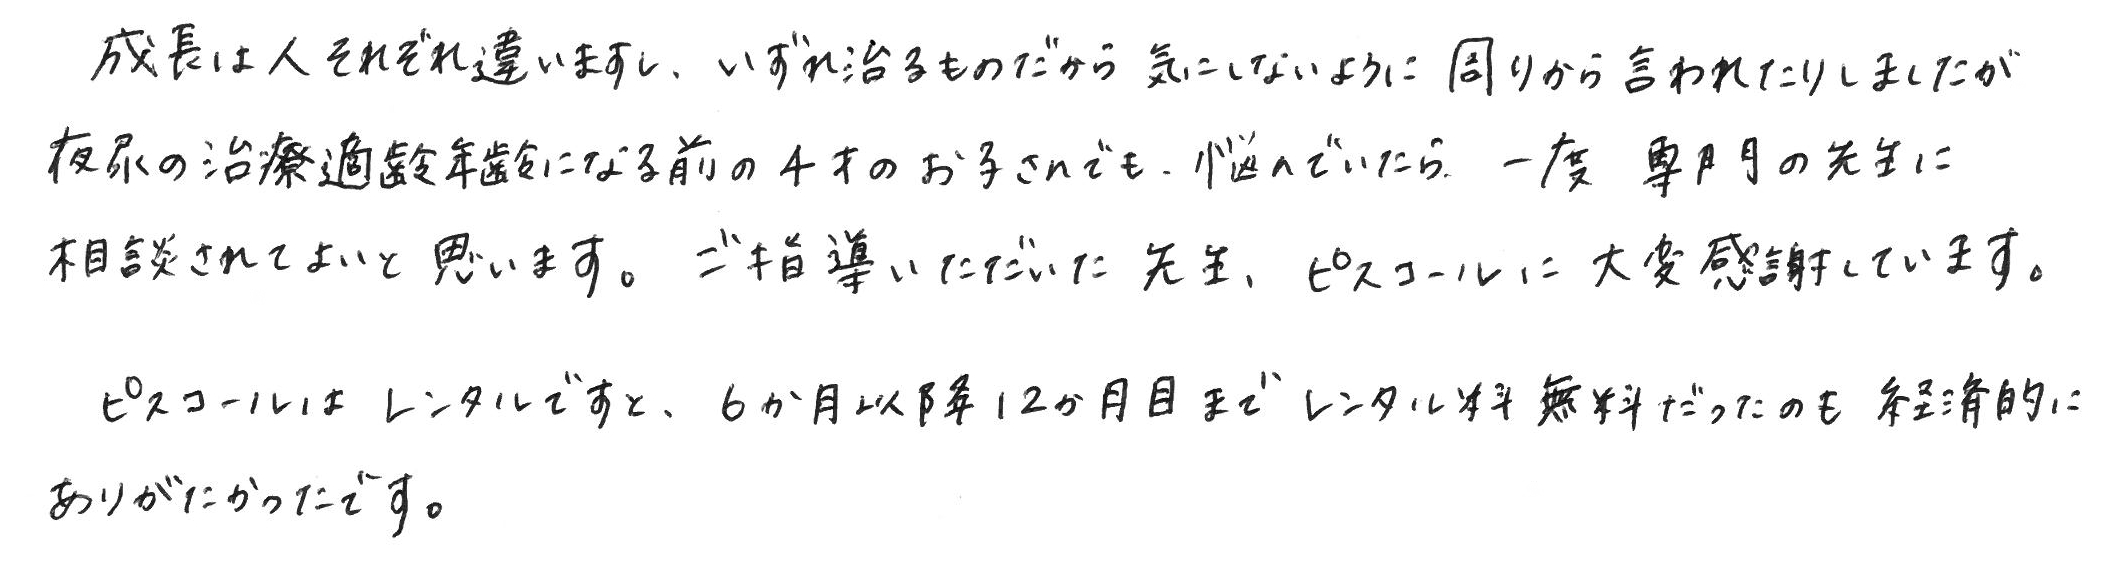 成長は人それぞれ違いますし、いずれ治るものだから気にしないように周りから言われたりしましたが
夜尿の治療適齢年齢になる前の4才のお子さんでも、悩んでいたら、一度 専門の先生に
相談されてよいと思います。ご指導いただいた先生、ピスコールに大変感謝しています。
ピスコールはレンタルですと、6か月以降12か月目までレンタル料無料だったのも経済的に
ありがたかったです。